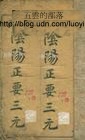 五雲的部落
http://blog.udn.com/luoyi
陰陽正要三元
陰陽正要三元